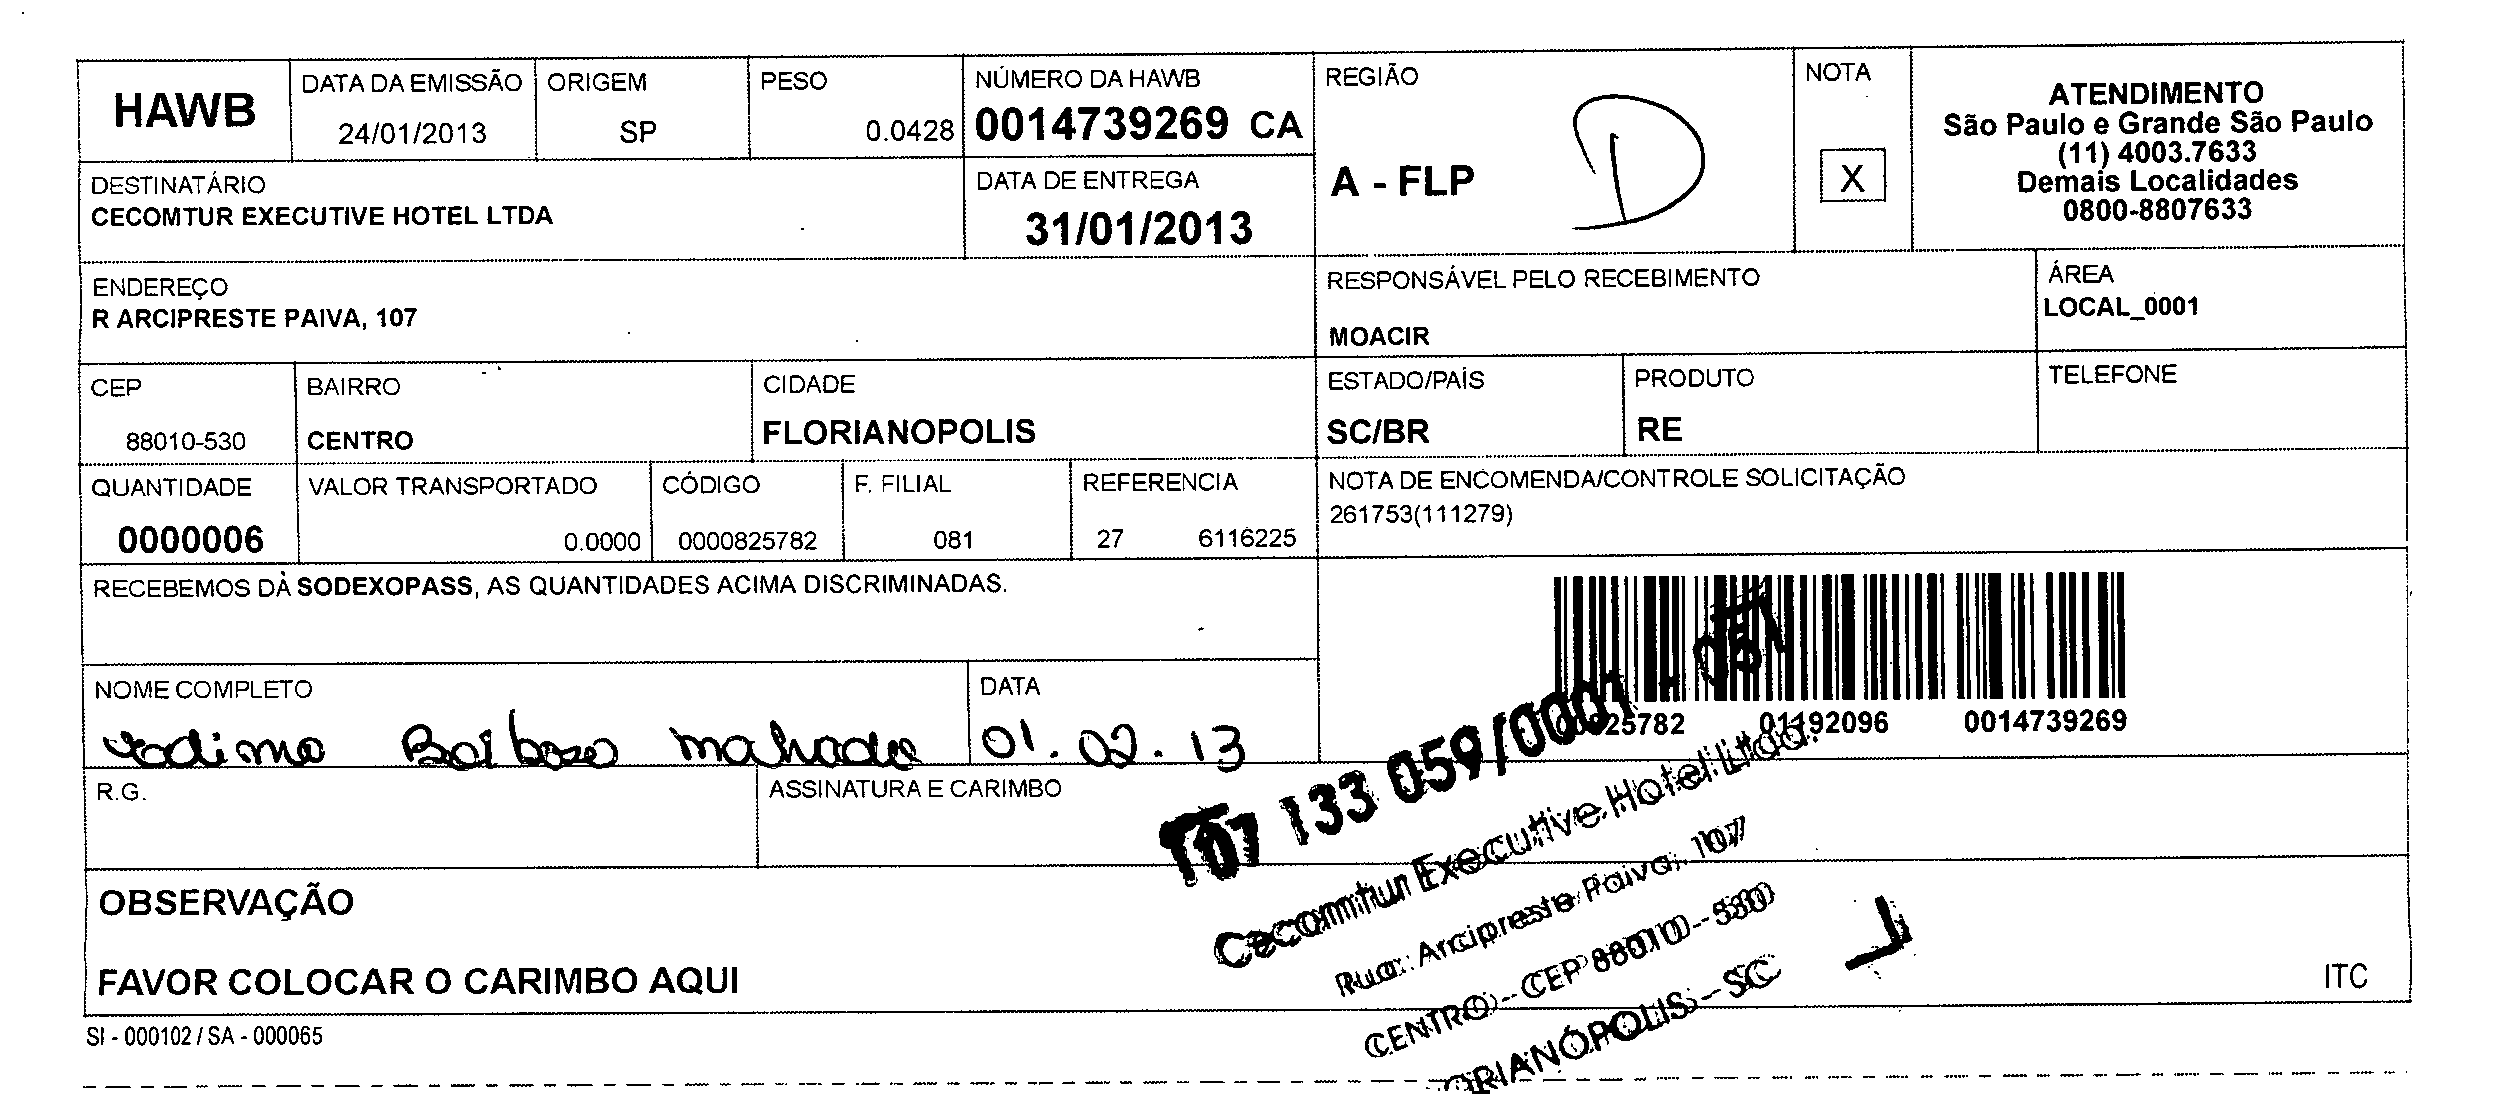 HAWB
DATA DA EMISSÃO
24/01/2013
ORIGEM
SP
PESO
0.0428
NÚMERO DA HAWB
0014739269 CA
REGIÃO
A - FLP
D
NOTA
X
ATENDIMENTO
São Paulo e Grande São Paulo
(11) 4003.7633
Demais Localidades
0800-8807633
DESTINATÁRIO
CECOMTUR EXECUTIVE HOTEL LTDA
DATA DE ENTREGA
31/01/2013
ENDEREÇO
R ARCIPRESTE PAIVA, 107
RESPONSÁVEL PELO RECEBIMENTO
MOACIR
ÁREA
LOCAL_0001
CEP
88010-530
BAIRRO
CENTRO
CIDADE
FLORIANOPOLIS
ESTADO/PAÍS
SC/BR
PRODUTO
RE
TELEFONE
QUANTIDADE
0000006
VALOR TRANSPORTADO
0.0000
CÓDIGO
0000825782
F. FILIAL
081
REFERENCIA
27 6116225
NOTA DE ENCOMENDA/CONTROLE SOLICITAÇÃO
261753(111279)
RECEBEMOS DA SODEXOPASS, AS QUANTIDADES ACIMA DISCRIMINADAS.
01192096 0014739269
NOME COMPLETO
Machado
DATA
01.02.13
R.G.
ASSINATURA E CARIMBO
07 133 059/0001 - 05
Cecomtur Executive Hotel Ltda.
Rua: Arcipreste Paiva, 107
CENTRO - CEP 88010 - 530
ORIANÓPOLIS - SC
OBSERVAÇÃO
FAVOR COLOCAR O CARIMBO AQUI
ITC
SI - 000102 / SA - 000065